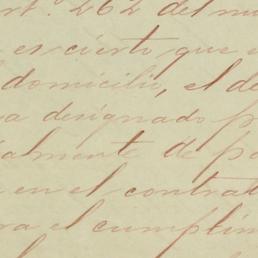 art. 262 del mi
es cierto que e
domicilio, el de
a designado p
almente de pa
en el contrat
ra el cumplim